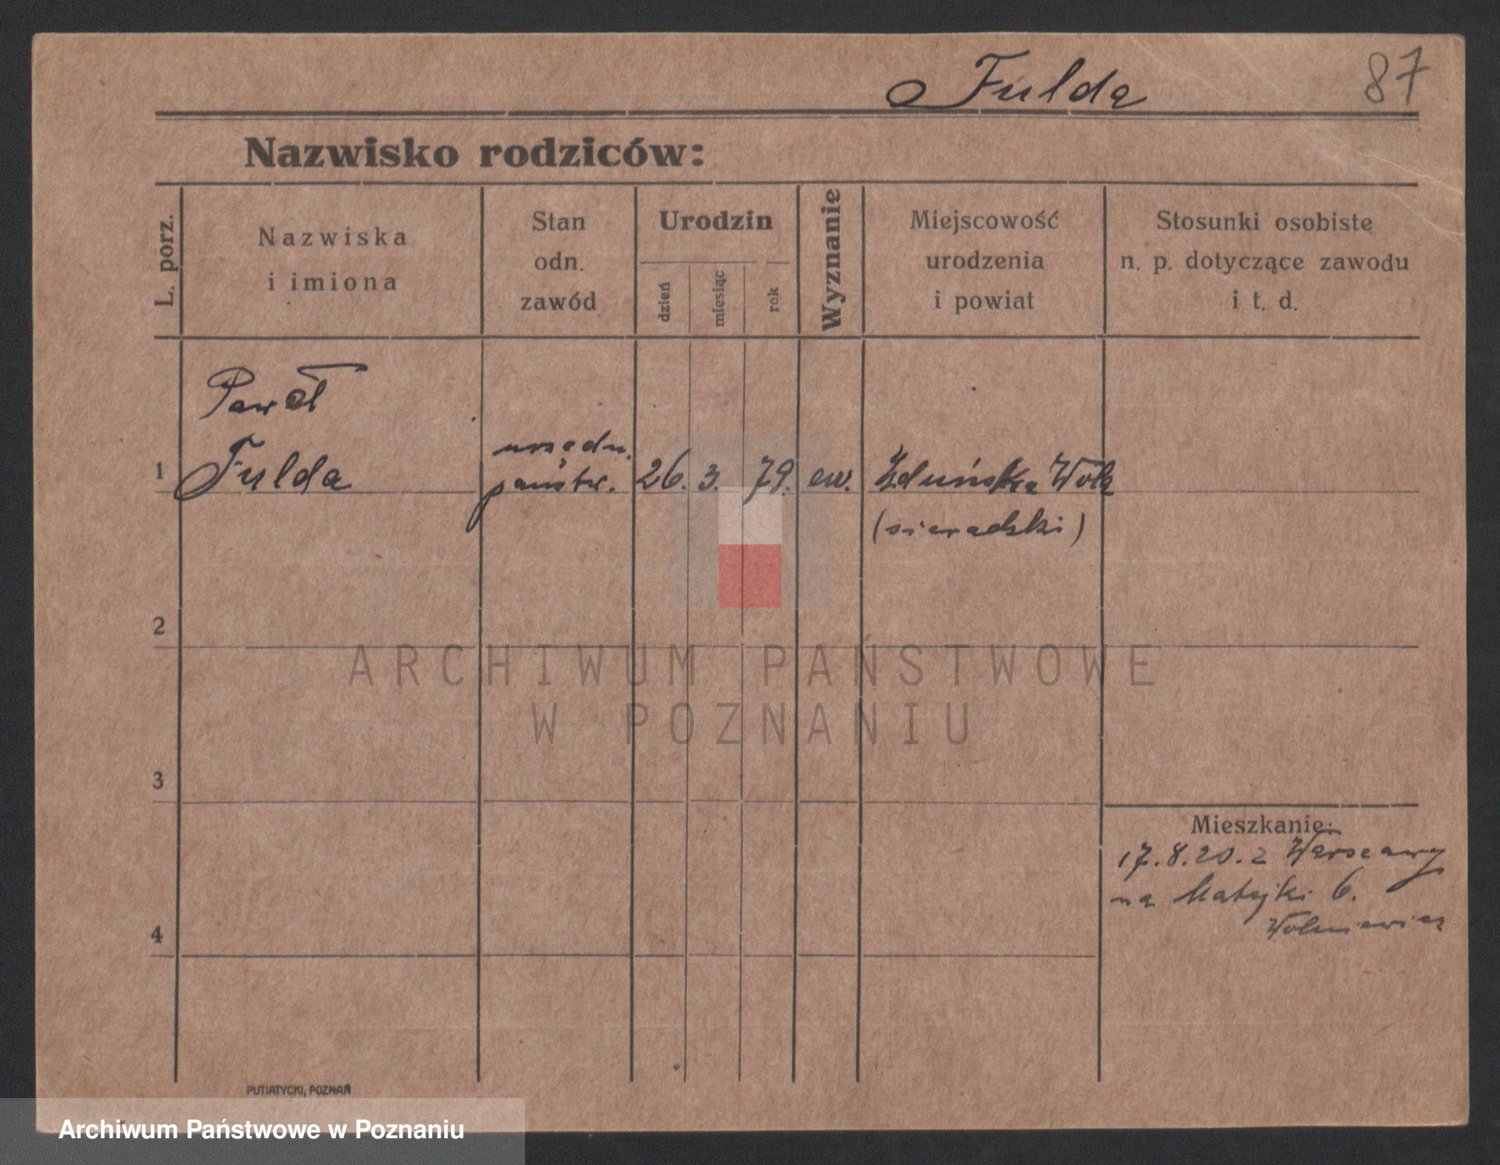 Fulda
87
Nazwisko rodziców:
L. porz.
Nazwiska
i imiona
Stan
odn.
zawód
Urodzin
dzień
miesiąc
rok
Wyznanie
Miejscowość
urodzenia
i powiat
Stosunki osobiste
n. p. dotyczące zawodu
i t. d.
Paweł
1 Fulda
urzędn.
państw.
26. 3. 79. ew. Zduńska Wola
(sieradzki)
2
ARCHIWUM PAŃSTWOWE
W POZNANIU
3
Mieszkanie:
17.8.20. z Warszawy
na Matejki 6.
4
PUTIATYCKI, POZNAŃ
Archiwum Państwowe w Poznaniu